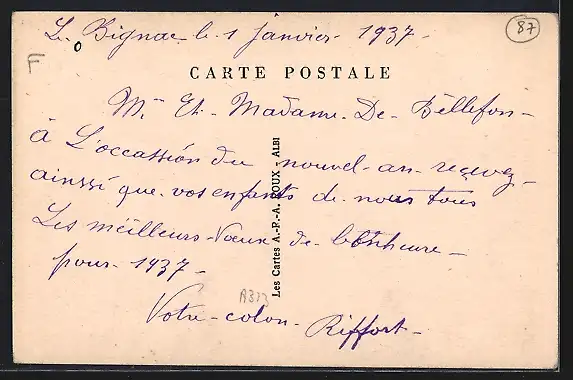 L. Bignac le 1 janvier 1937-
87
F
CARTE POSTALE
Mr. Et. Madame. De. Bellefon-
à L'occassion du nouvel-an-reçevez-
ainssi que vos enfants de nous tous
Les meilleurs-Vœux-de-bonheure-
pour-1937-
Votre-colon-Riffort-
A323
Les Cartes A.-P.-A. POUX - ALBI